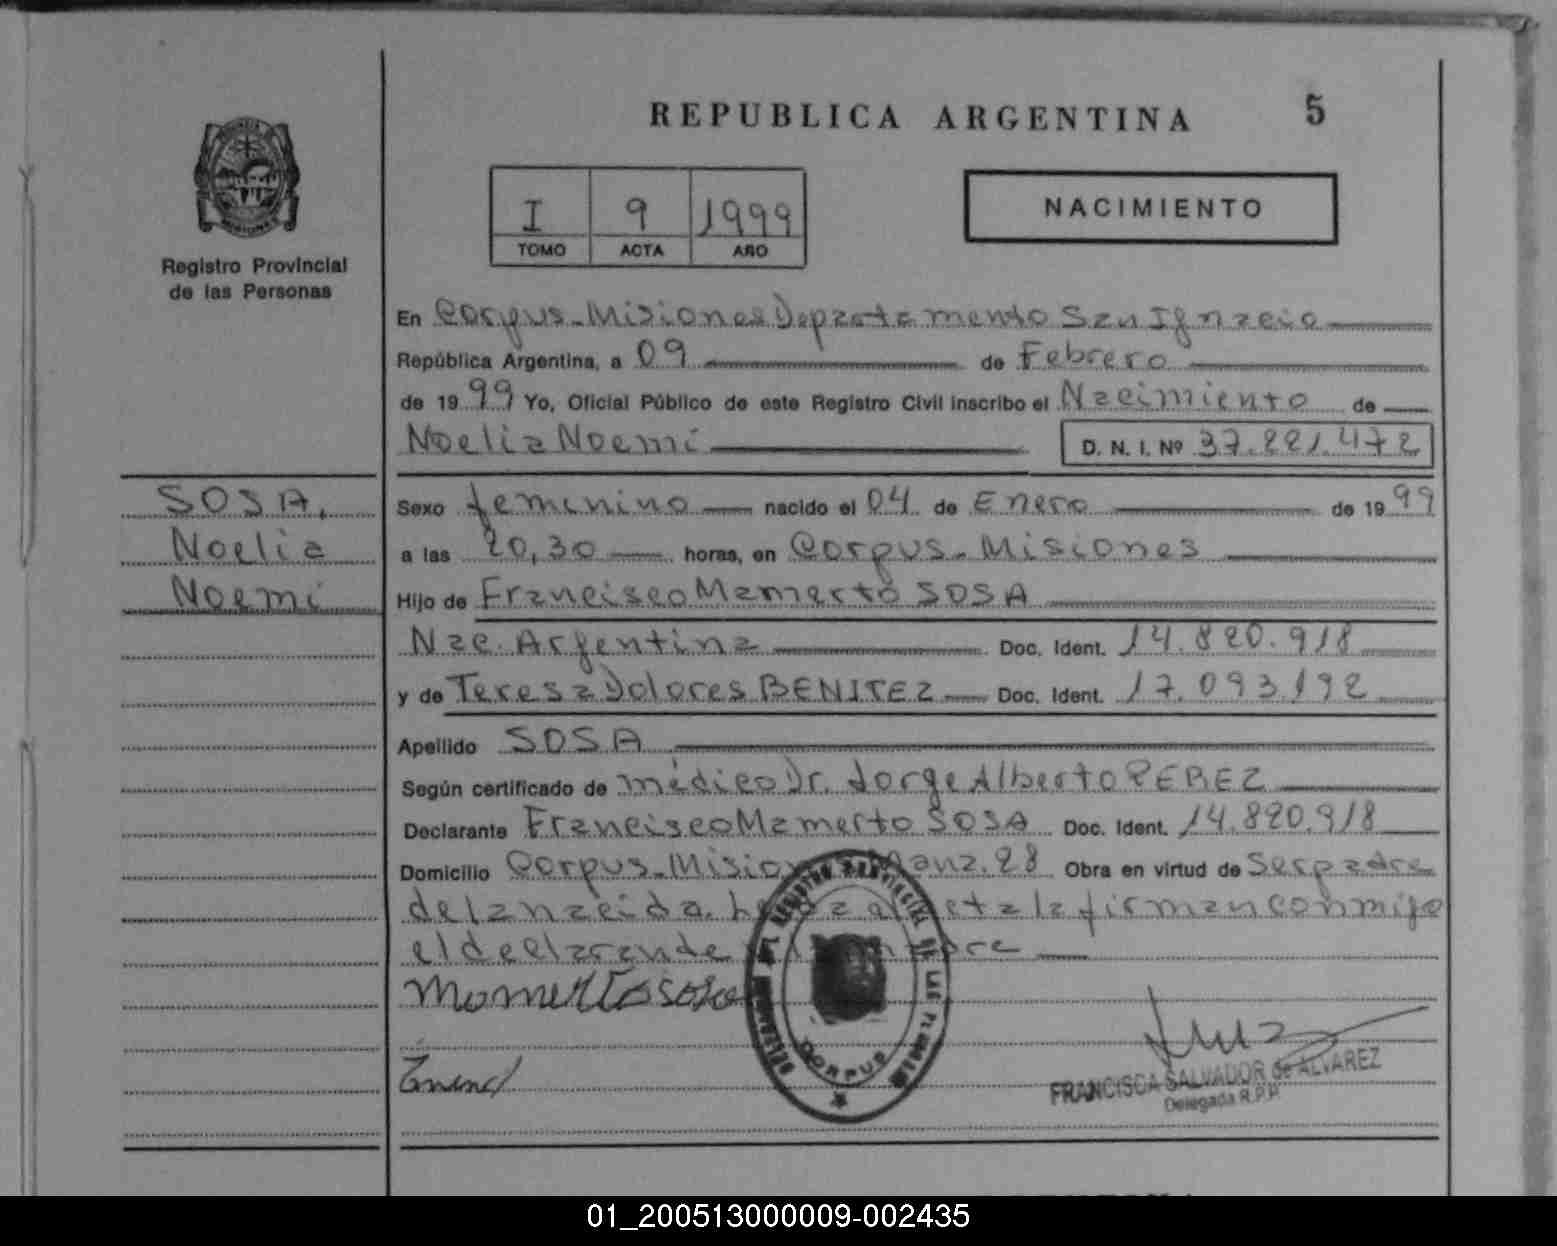 REPUBLICA ARGENTINA 5
Registro Provincial
de las Personas
I 9 1999
TOMO ACTA AÑO
NACIMIENTO
En Corpus-Misiones Departamento San Ignacio
República Argentina, a 09 de Febrero
de 1999 Yo, Oficial Público de este Registro Civil inscribo el Nacimiento de
Noelia Noemi D. N. I. Nº 37.221.472
SOSA,
Noelia
Noemi
Sexo femenino nacido el 04 de Enero de 1999
a las 20,30 horas, en Corpus-Misiones
Hijo de Francisco Mamerto SOSA
Nac. Argentina Doc. Ident. 14.820.918
y de Teresa Dolores BENITEZ Doc. Ident. 17.093.192
Apellido SOSA
Según certificado de médico Dr. Jorge Alberto PEREZ
Declarante Francisco Mamerto SOSA Doc. Ident. 14.820.918
Domicilio Corpus-Misiones Manz. 28 Obra en virtud de Ser padre
de la nacida. acta la firman conmigo
el declarante
Mamerto sosa
REGISTRO PROVINCIAL DE LAS PERSONAS
CORPUS
FRANCISCA SALVADOR de ALVAREZ
Delegada R.P.P.
01_200513000009-002435